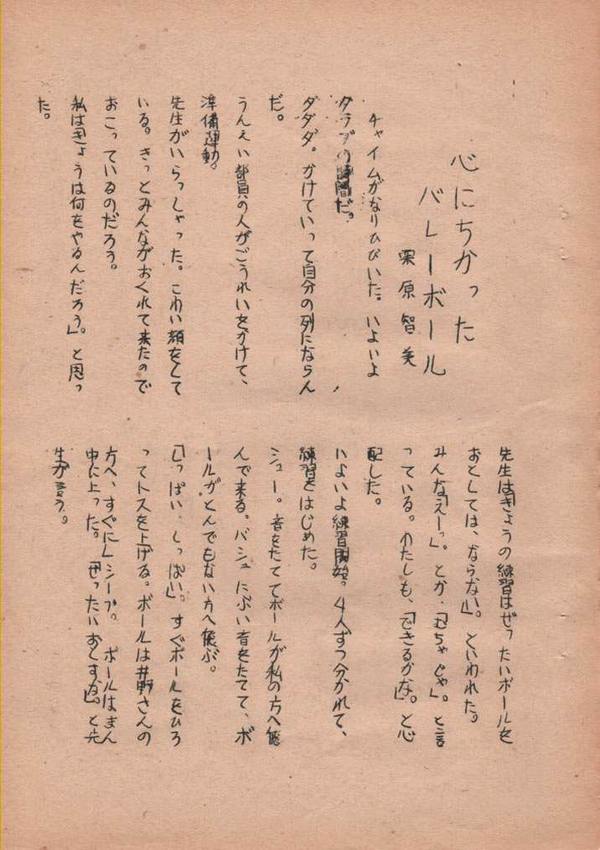 心にちかった
バレーボール
栗原智美
チャイムがなりひびいた。いよいよ
クラブの時間だ。
ダダダ。かけていって自分の列にならん
だ。
うんえい部員の人がごうれいをかけて、
準備運動。
先生がいらっしゃった。こわい顔をして
いる。きっとみんながおくれて来たので
おこっているのだろう。
私は「きょうは何をやるんだろう」。と思っ
た。
先生は「きょうの練習はぜったいボールを
おとしては、ならない」。といわれた。
みんな「えーっ」。とか「むちゃじゃ」。と言
っている。わたしも、「できるかな」。と心
配した。
いよいよ練習開始。4人ずつ分かれて、
練習をはじめた。
シュー。音をたててボールが私の方へ飛
んで来る。バシュにぶい音をたてて、ボ
ールがとんでもない方へ飛ぶ。
「しっぱい、しっぱい」。すぐボールをひろ
ってトスを上げる。ボールは井野さんの
方へ、すぐにレシーブ。ボールはまん
中に上った。「ぜったいおとすな」。と先
生が言う。